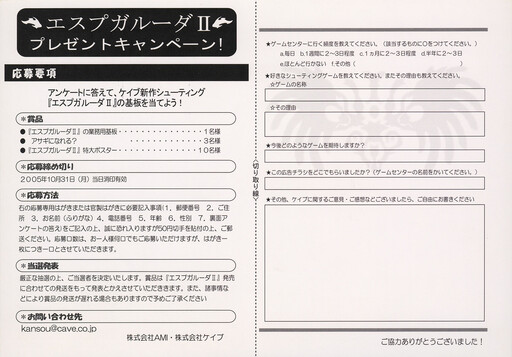 エスプガルーダⅡ
プレゼントキャンペーン!
応募要項
アンケートに答えて、ケイブ新作シューティング
『エスプガルーダⅡ』の基板を当てよう!
★賞品
●『エスプガルーダⅡ』の業務用基板・・・・・・・・・・・・・・1名様
● アサギになれる?・・・・・・・・・・・・・・3名様
●『エスプガルーダⅡ』特大ポスター・・・・・・・・・・・・・・10名様
★応募締め切り
2005年10月31日(月)当日消印有効
★応募方法
右の応募専用はがきまたは官製はがきに必要記入事項(1、郵便番号 2、ご住
所 3、お名前(ふりがな) 4、電話番号 5、年齢 6、性別 7、裏面ア
ンケートの答え)をご記入の上、誠に恐れ入りますが50円切手を貼付の上、ご郵
送ください。応募口数は、お一人様何口でもご応募いただけますが、はがき一
枚につき一口とさせていただきます。
★当選発表
厳正な抽選の上、ご当選者を決定いたします。賞品は『エスプガルーダⅡ』発売
に合わせての発送をもって発表とかえさせていただききます。また、諸事情な
どにより賞品の発送が遅れる場合もありますので予めご了承ください
★お問い合わせ先
kansou@cave.co.jp
株式会社AMI・株式会社ケイブ
〈切り取り線〉
★ゲームセンターに行く頻度を教えてください。(該当するものに○をつけてください。)
a.毎日 b.1週間に2~3日 c.1ヵ月に2~3日 d.半年に2~3日
e.ほとんど行かない f.その他( )
★好きなシューティングゲームを教えてください。またその理由も教えてください。
☆ゲームの名称
☆その理由
★今後どのようなゲームを期待しますか?
★この広告チラシをどこでもらいましたか?(ゲームセンターの名前をかいてください。)
★その他、ケイブに関するご意見・ご感想などございましたら、ご自由にお書きください
ご協力ありがとうございました!